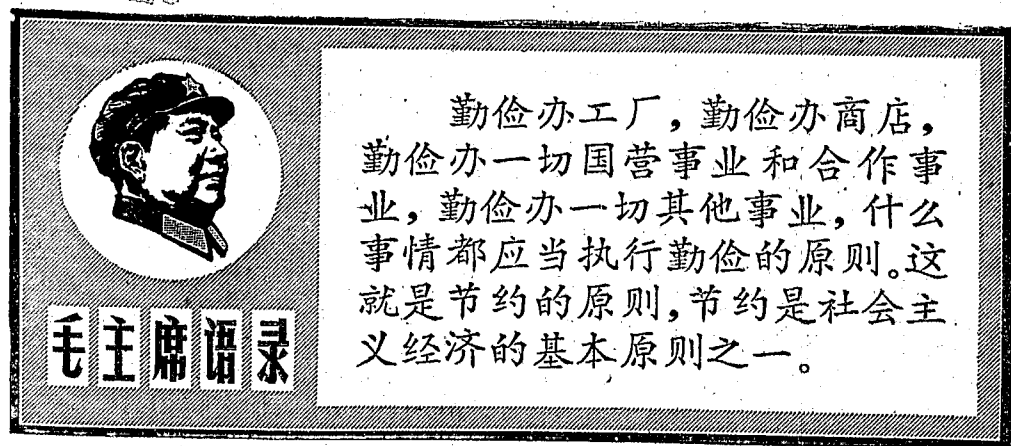 勤俭办工厂，勤俭办商店，
勤俭办一切国营事业和合作事
业，勤俭办一切其他事业，什么
事情都应当执行勤俭的原则。这
就是节约的原则，节约是社会主
义经济的基本原则之一。
毛主席语录